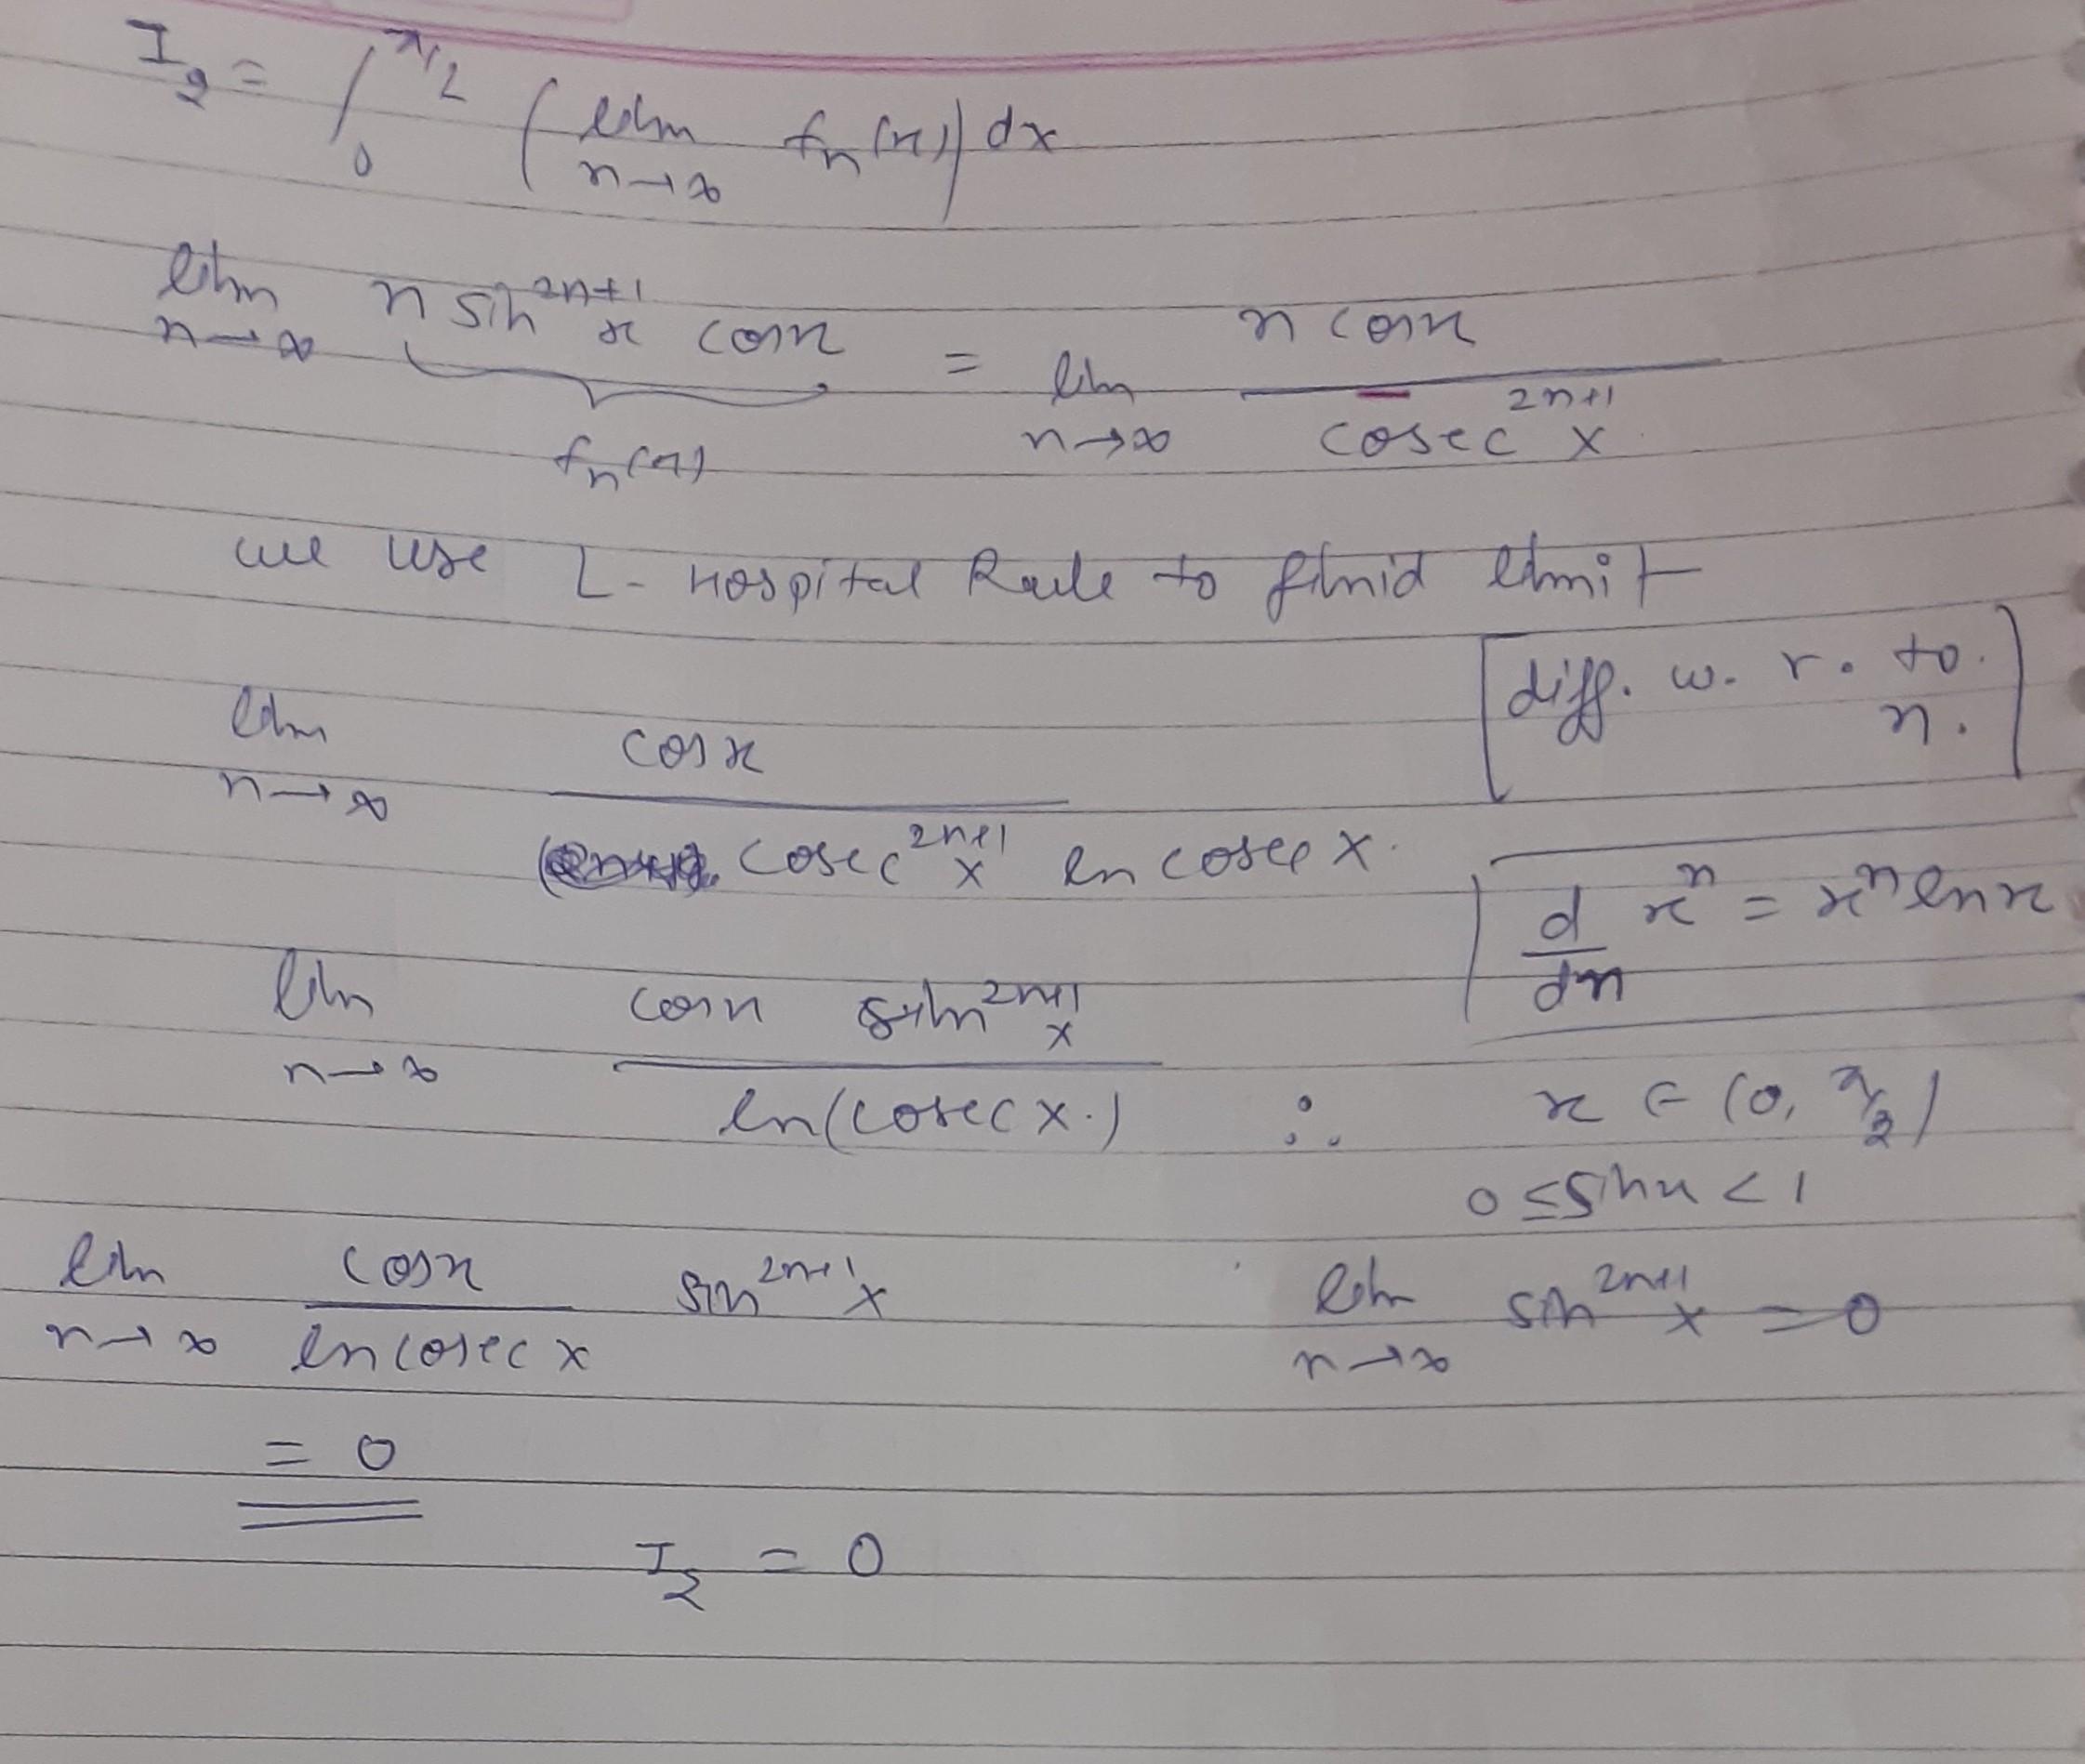 I₂ = ∫₀^{π/2} ( lim n→∞ fn(x) ) dx
lim n→∞ n sin^{2n+1} x cosx = lim n→∞ n cosx / cosec^{2n+1} x
fn(x)
we use L-Hospital Rule to find limit
[diff. w. r. to. n.]
lim n→∞ cosx / cosec^{2n+1} x ln cosec x.
d/dn x^n = x^n ln x
lim n→∞ cosx sin^{2n+1} x / ln(cosec x.) ∴ x ∈ (0, π/2)
0 ≤ sinx < 1
lim n→∞ cosx / ln cosec x sin^{2n+1} x lim n→∞ sin^{2n+1} x = 0
= 0
I₂ = 0